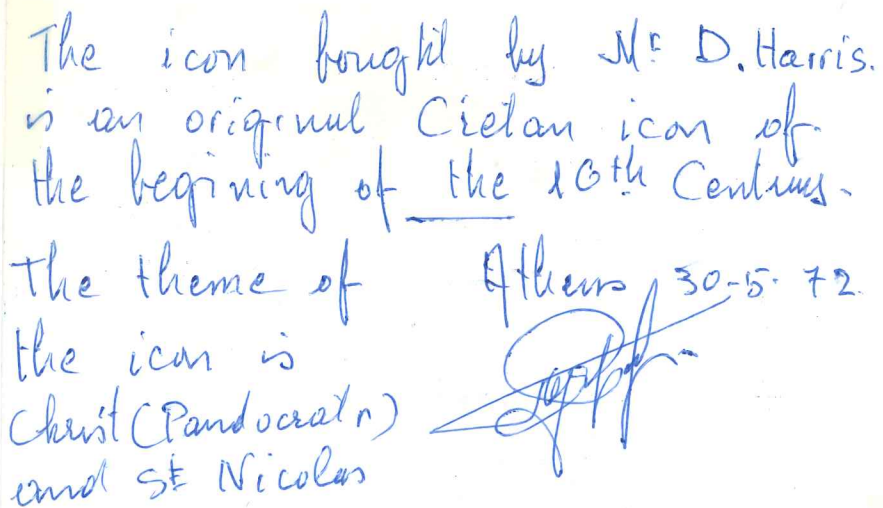 The icon bought by Mr D. Harris.
is an original Cretan icon of
the begining of the 16th Century.
The theme of
the icon is
Christ (Pandocrator)
and St Nicolas
Athens 30-5-72